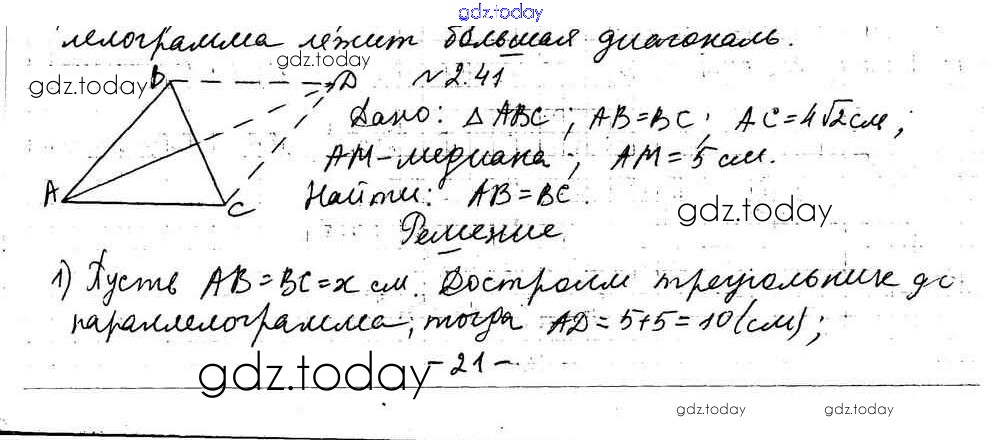 gdz.today
лелограмма лежит большая диагональ.
gdz.today
gdz.today
B D №2.41
Дано: △ABC; AB=BC; AC=4√2см;
AM-медиана; AM=5 см.
A C Найти: AB=BC.
gdz.today
Решение.
1) Пусть AB=BC=x см. Достроим треугольник до
параллелограмма, тогда AD=5+5=10(см);
-21-
gdz.today
gdz.today gdz.today